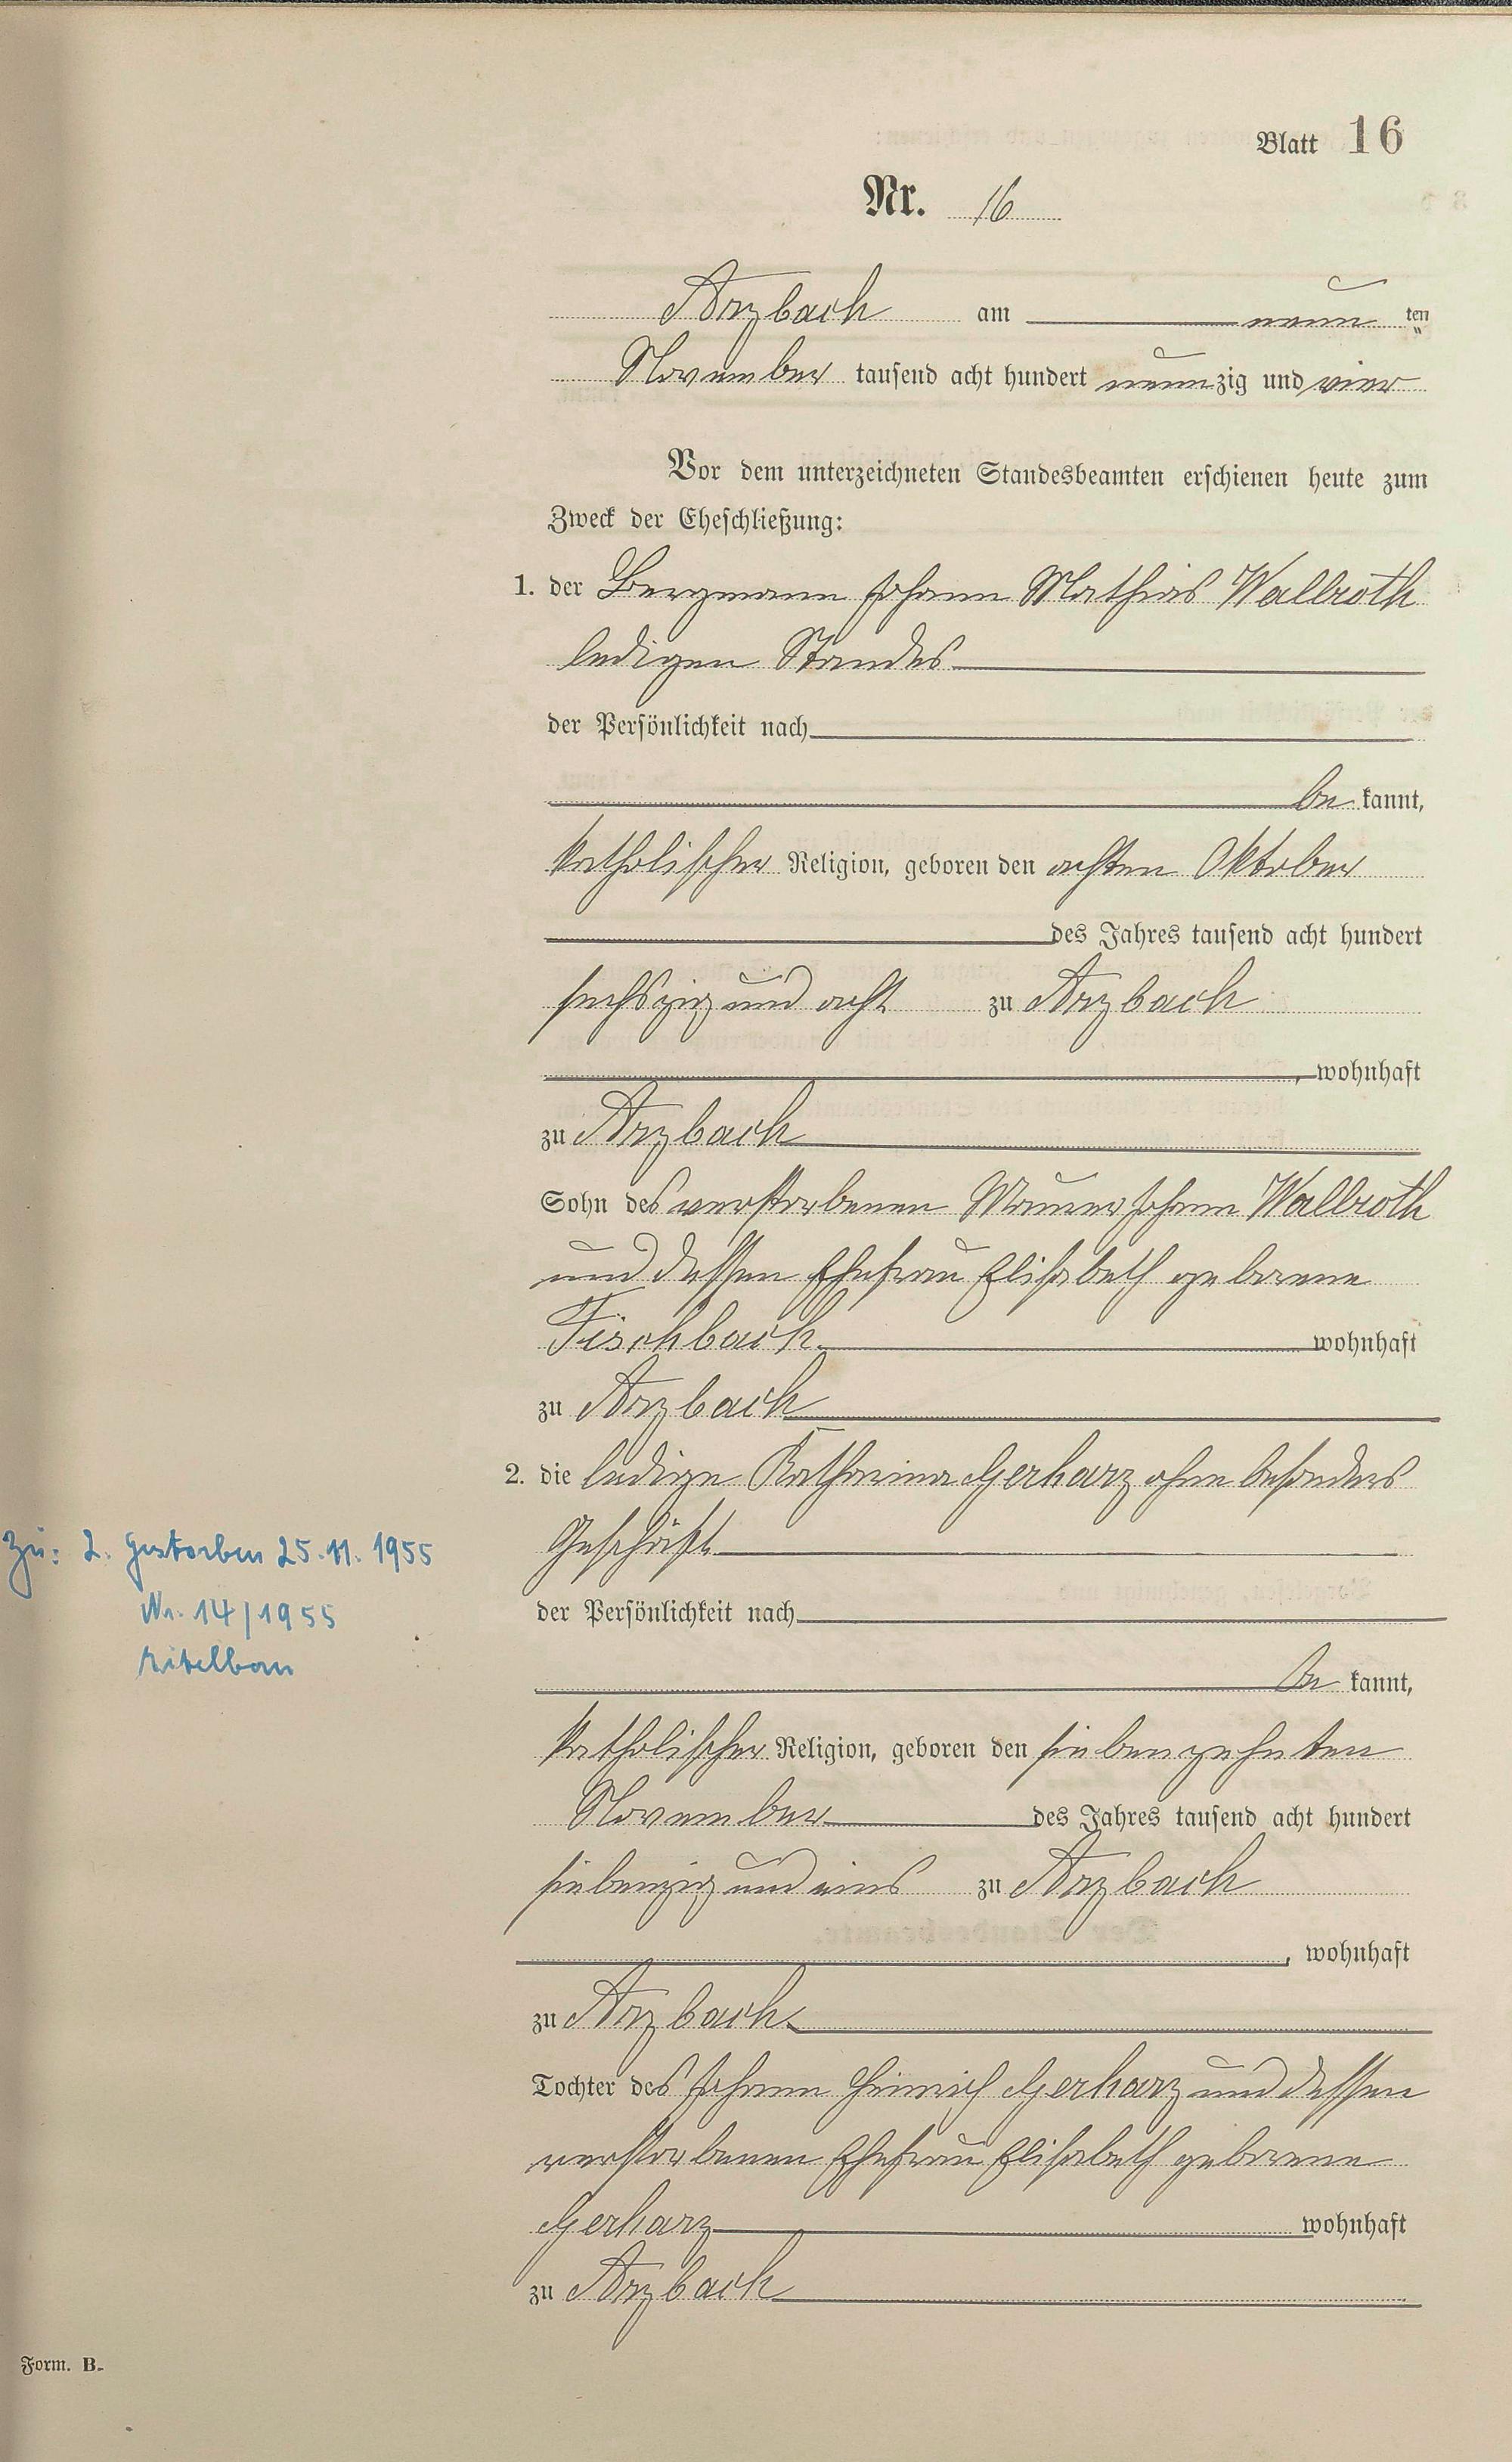 Blatt 16
Nr. 16
Arzbach am neun ten
November tausend acht hundert neunzig und vier
Vor dem unterzeichneten Standesbeamten erschienen heute zum
Zweck der Eheschließung:
1. der Bergmann Johann Mathias Wallroth
ledigen Standes
der Persönlichkeit nach
be kannt,
katholischer Religion, geboren den achten Oktober
des Jahres tausend acht hundert
sechszig und acht zu Arzbach
, wohnhaft
zu Arzbach
Sohn des verstorbenen Maurer Johann Wallroth
und dessen Ehefrau Elisabeth geborene
Fischbach wohnhaft
zu Arzbach
2. die ledige Katharina Gerharz ohne besonders
Geschäft
Zu: 2. Gestorben 25.11.1955
Nr. 14/1955
der Persönlichkeit nach
be kannt,
katholischer Religion, geboren den siebenzehnten
November des Jahres tausend acht hundert
siebenzig und eins zu Arzbach
, wohnhaft
zu Arzbach
Tochter des Johann Heinrich Gerharz und dessen
verstorbenen Ehefrau Elisabeth geborene
Gerharz wohnhaft
zu Arzbach
Form. B.